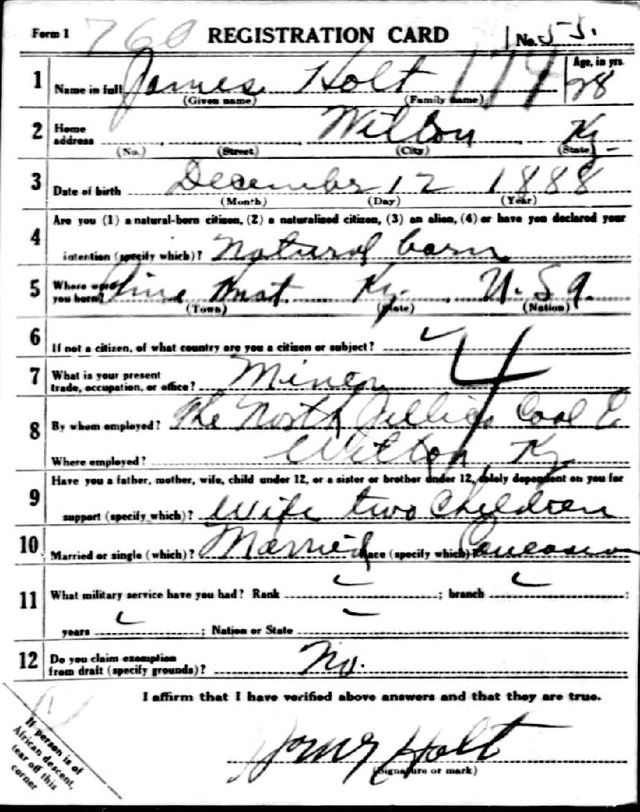 Form 1 760 REGISTRATION CARD No. 55.
1 Name in full James Holt 179 Age, in yrs. 28
(Given name) (Family name)
2 Home address Wilton Ky.
(No.) (Street) (City) (State)
3 Date of birth December 12 1888
(Month) (Day) (Year)
4 Are you (1) a natural-born citizen, (2) a naturalized citizen, (3) an alien, (4) or have you declared your
intention (specify which)? Natural born
5 Where were you born? Pine Knot Ky. U.S.A.
(Town) (State) (Nation)
6 If not a citizen, of what country are you a citizen or subject?
7 What is your present trade, occupation, or office? Miner 4
8 By whom employed? The North Jellico Coal C
Where employed? Wilton, Ky
9 Have you a father, mother, wife, child under 12, or a sister or brother under 12, solely dependent on you for
support (specify which)? Wife two Children
10 Married or single (which)? Married Race (specify which)? Caucasian
11 What military service have you had? Rank ; branch
years ; Nation or State
12 Do you claim exemption from draft (specify grounds)? No.
I affirm that I have verified above answers and that they are true.
If person is of
African descent,
tear off this
corner
Holt
(Signature or mark)